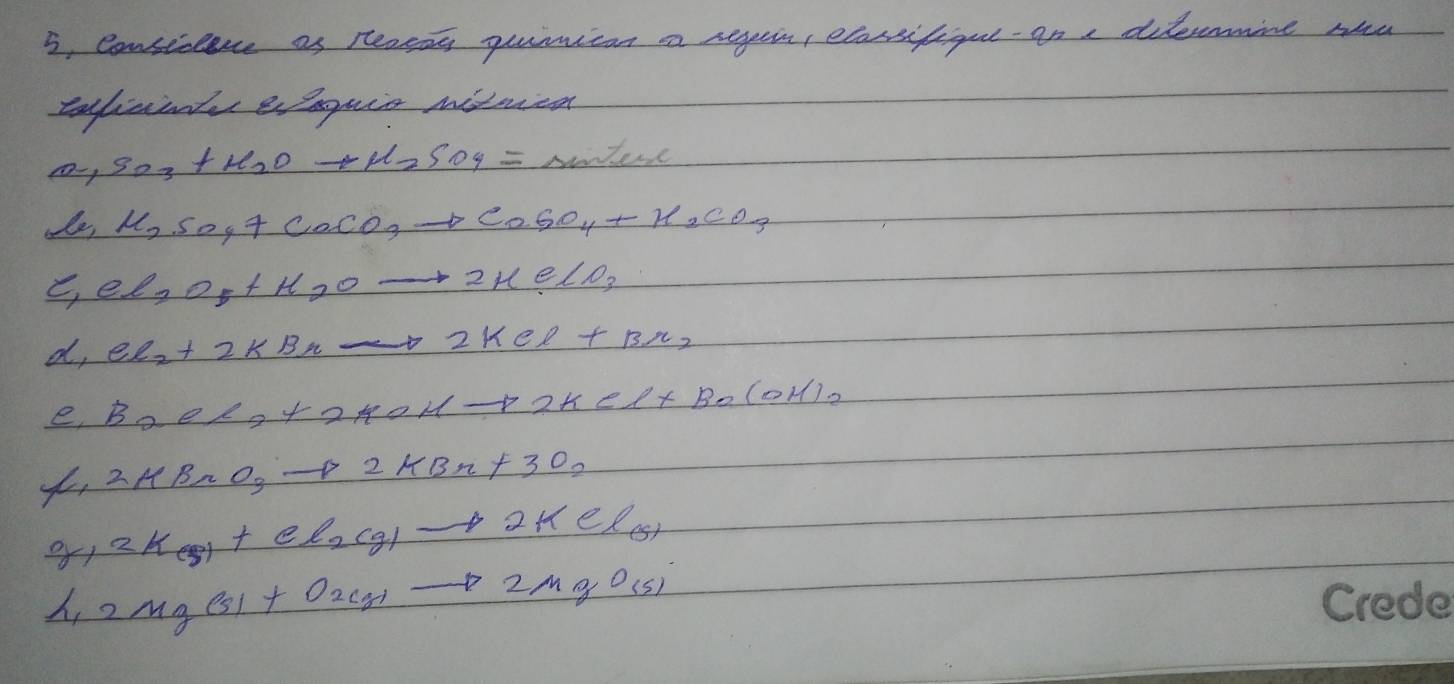 5, Considere as reações químicas a seguir, classifique-as e determine seu
coeficientes estoquio métrica
a, SO3 + H2O → H2SO4 = sintese
b, H2SO4 + CaCO3 → CaSO4 + H2CO3
c, Cl2O5 + H2O → 2HClO3
d, Cl2 + 2KBr → 2KCl + Br2
e, BaCl2 + 2KOH → 2KCl + Ba(OH)2
f, 2KBrO3 → 2KBr + 3O2
g, 2K(s) + Cl2(g) → 2KCl(s)
h, 2Mg(s) + O2(g) → 2MgO(s)
Crede